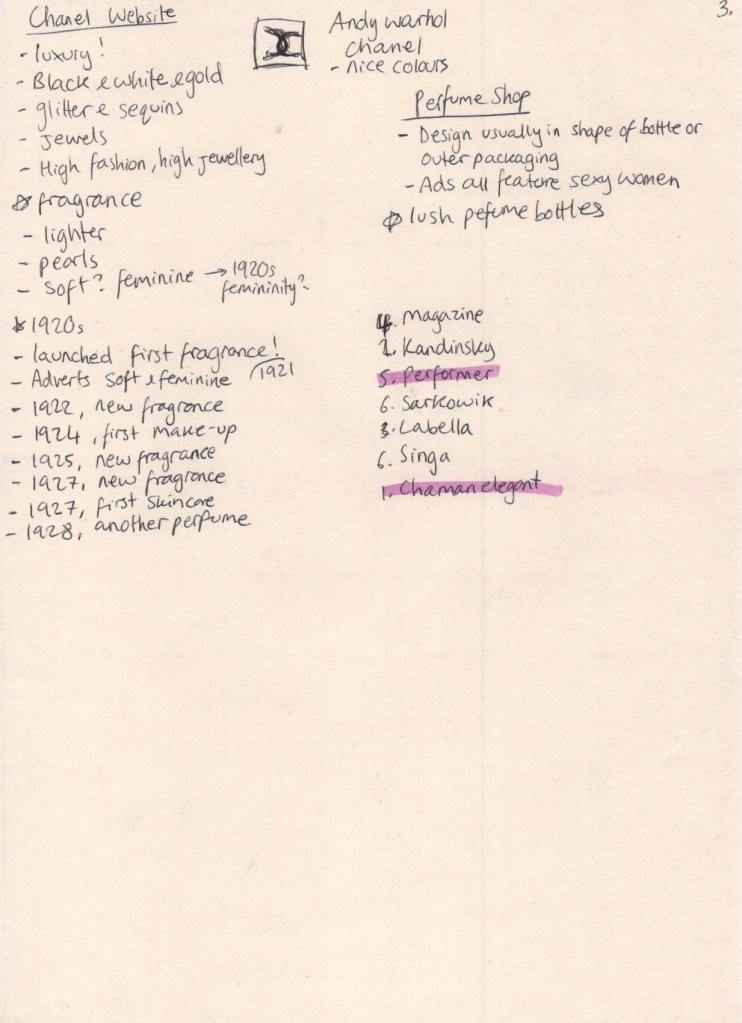 3.
Chanel Website
- luxury!
- Black & white & gold
- glitter & sequins
- Jewels
- High fashion, high jewellery
fragrance
- lighter
- pearls
- soft? feminine → 1920s
femininity?
1920s
- launched first fragrance!
1921
- Adverts soft & feminine
- 1922, new fragrance
- 1924, first make-up
- 1925, new fragrance
- 1927, new fragrance
- 1927, first skincare
- 1928, another perfume
Andy warhol
chanel
- nice colours
Perfume Shop
- Design usually in shape of bottle or
outer packaging
- Ads all feature sexy women
lush pefume bottles
4. Magazine
2. Kandinsky
5. Performer
6. Sarkowik
3. Labella
6. Singa
1. Chaman elegant